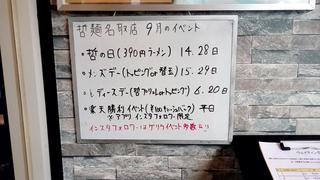 哲麺名取店 9月のイベント
・哲の日(390円ラーメン) 14.28日
・メンズデー(トッピングor替玉) 15.29日
・レディースデー(哲プリンorトッピング) 6.20日
・楽天勝利イベント(¥100チャーシューパーク) 平日
※アプリ インスタフォロワー限定
インスタフォロワーはゲリライベント多数